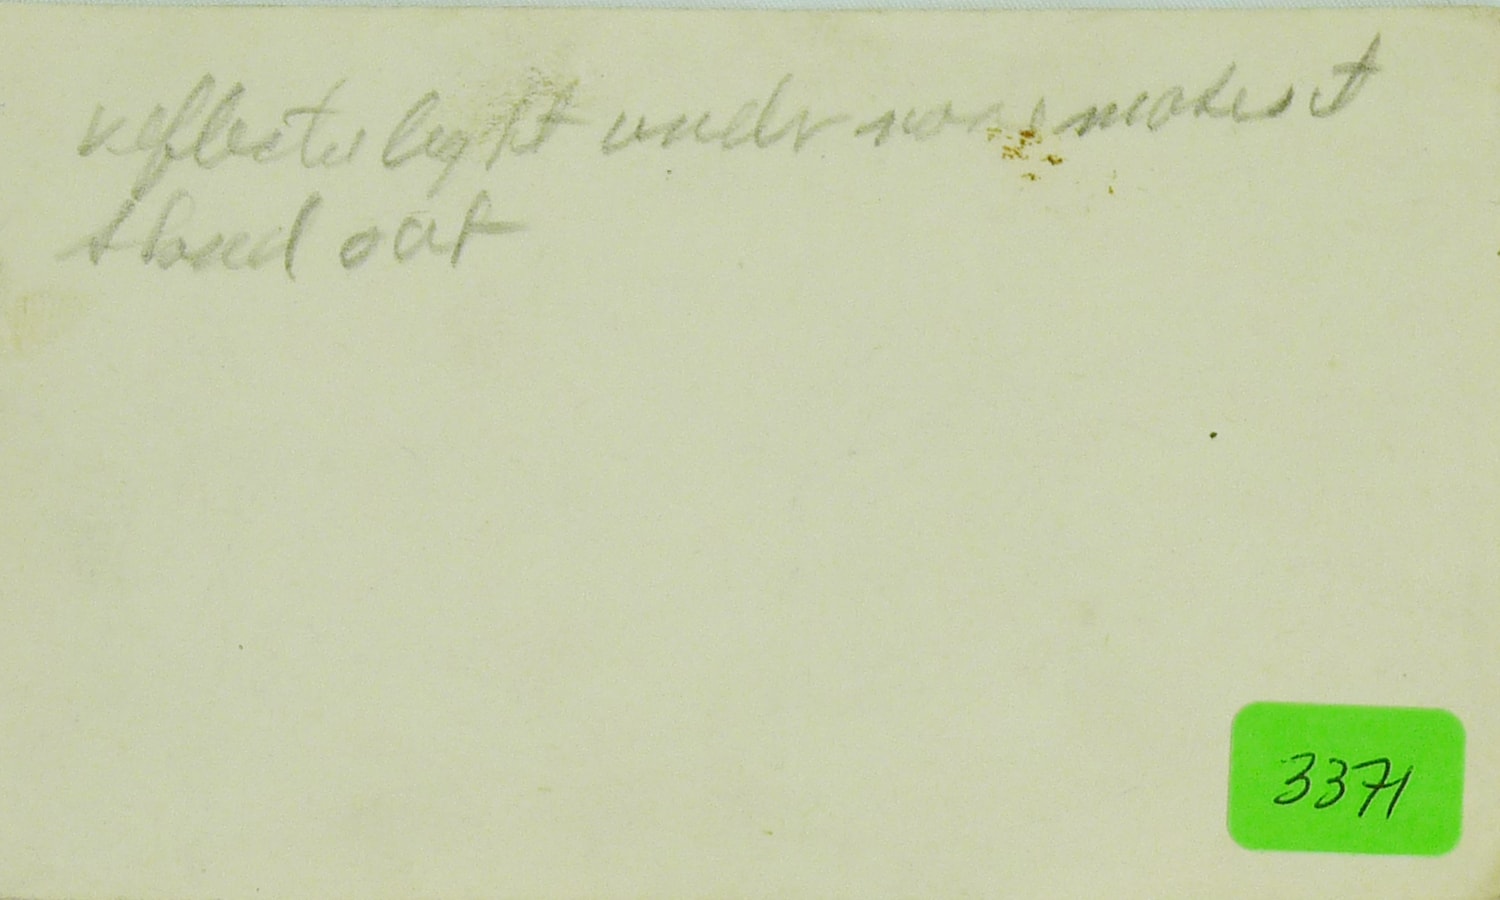 reflects light under nose makes it
stand out
3371